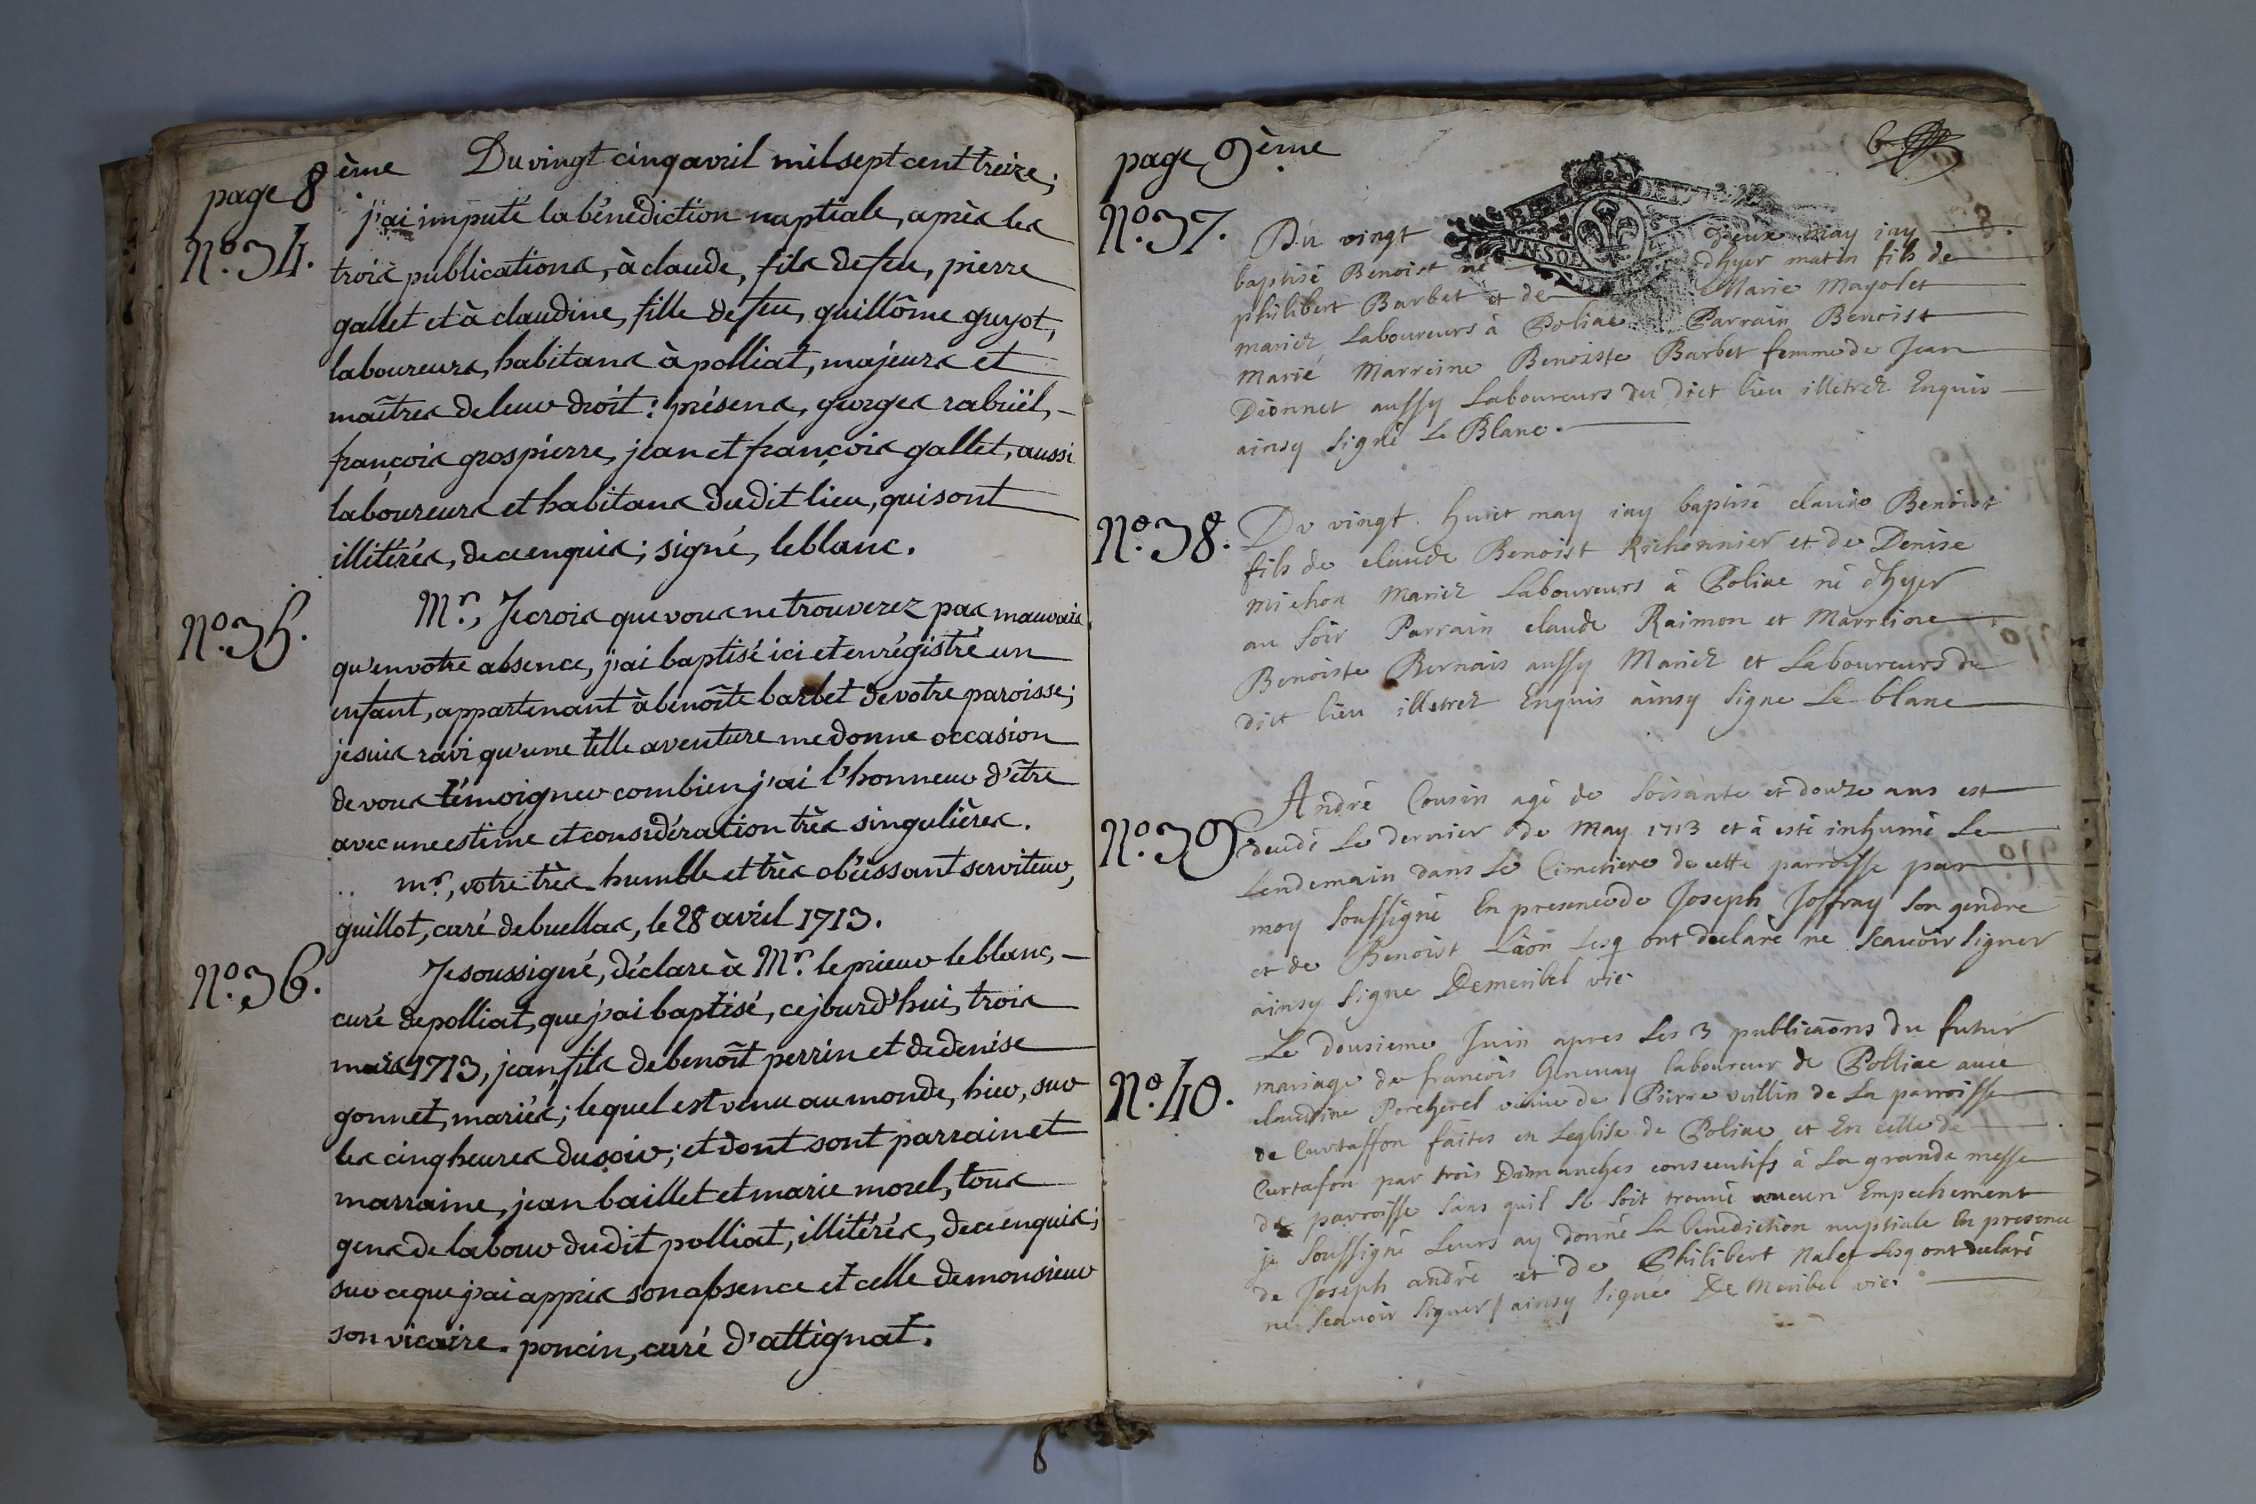 page 8ème Du vingt cinq avril mil sept cent treize;
N.o 34. j'ai imputé la bénédiction nuptiale, après les
trois publications, à claude, fils de feu, pierre
gallet et à claudine, fille de feu, guillôme guyot,
laboureurs, habitans à polliat, majeurs et
maîtres de leur droit: présens, georges rabüel,
françois grospierre, jean et françois gallet, aussi
laboureurs et habitans dudit lieu, qui sont
illitérés, de ce enquis; signé, leblanc.
N.o 35. Mr., Je crois que vous ne trouverez pas mauvais
qu'en votre absence, j'ai baptisé ici et enrégistré un
enfant, appartenant à benoîte barbet de votre paroisse;
je suis ravi qu'une telle aventure me donne occasion
de vous témoigner combien j'ai l'honneur d'être
avec une estime et considération très singulières.
mr., votre très humble et très obéissant serviteur,
guillot, curé de buellas, le 28 avril 1713.
N.o 36. Je soussigné, déclare à Mr. le prieur leblanc,
curé de polliat, que j'ai baptisé, ce jourd'hui, trois
mais 1713, jean, fils de benoît perrin et de denise
gonnet, mariés; lequel est venu au monde, hier, sur
les cinq heures du soir; et dont sont parrain et
marraine, jean baillet et marie morel, tous
gens de labour dudit polliat, illitérés, de ce enquis;
sur ce que j'ai appris son absence et celle de monsieur
son vicaire. poncin, curé d'attignat.
page 9ème
N.o 37. Du vingt deux may iay
baptisé Benoist né dhyer matin fils de
philibert Barbet et de Marie Mayolet
mariez Laboureurs à Poliac Parrain Benoist
Marié Marreine Benoiste Barbet femme de Jean
Dionnet aussy Laboureurs du dict lieu illetrez Enquis
ainsy signé Le Blanc.
N.o 38. Du vingt huict may iay baptisé claude Benoist
fils de claude Benoist Richonnier et de Denise
michon Mariez Laboureurs à Poliac né dhyer
au soir Parrain claude Raimon et Marreine
Benoiste Bernais aussy Mariez et Laboureurs du
dict lieu illetrez Enquis ainsy signe Le blanc
N.o 39 André Cousin agé de soisante et douze ans est
decedé Le dernier de May 1713 et à esté inhumé Le
Lendemain dans Le Cimetiere de cette parroisse par
moy soussigné En presence de Joseph Joffray son gendre
et de Benoist Laon Lesq ont declaré ne scauoir signer
ainsy signe Demeribel vic.
N.o 40. Le dousieme Juin apres Les 3 publicaons du futur
mariage de francois Genevay laboureur de Polliac auec
claudine Porcherel veuve de Pierre vuillin de La parroisse
de Curtaffon faites en Leglise de Poliac et En celle de
Curtafon par trois Dimanches consecutifs à La grande messe
de parroisse sans quil se soit trouué aucun Empechement
je soussigné Leurs ay donné La benediction nuptiale En presence
de Joseph andré et de Philibert Nalet Lesq ont declaré
ne scauoir signer / ainsy signé De Meribel vic.